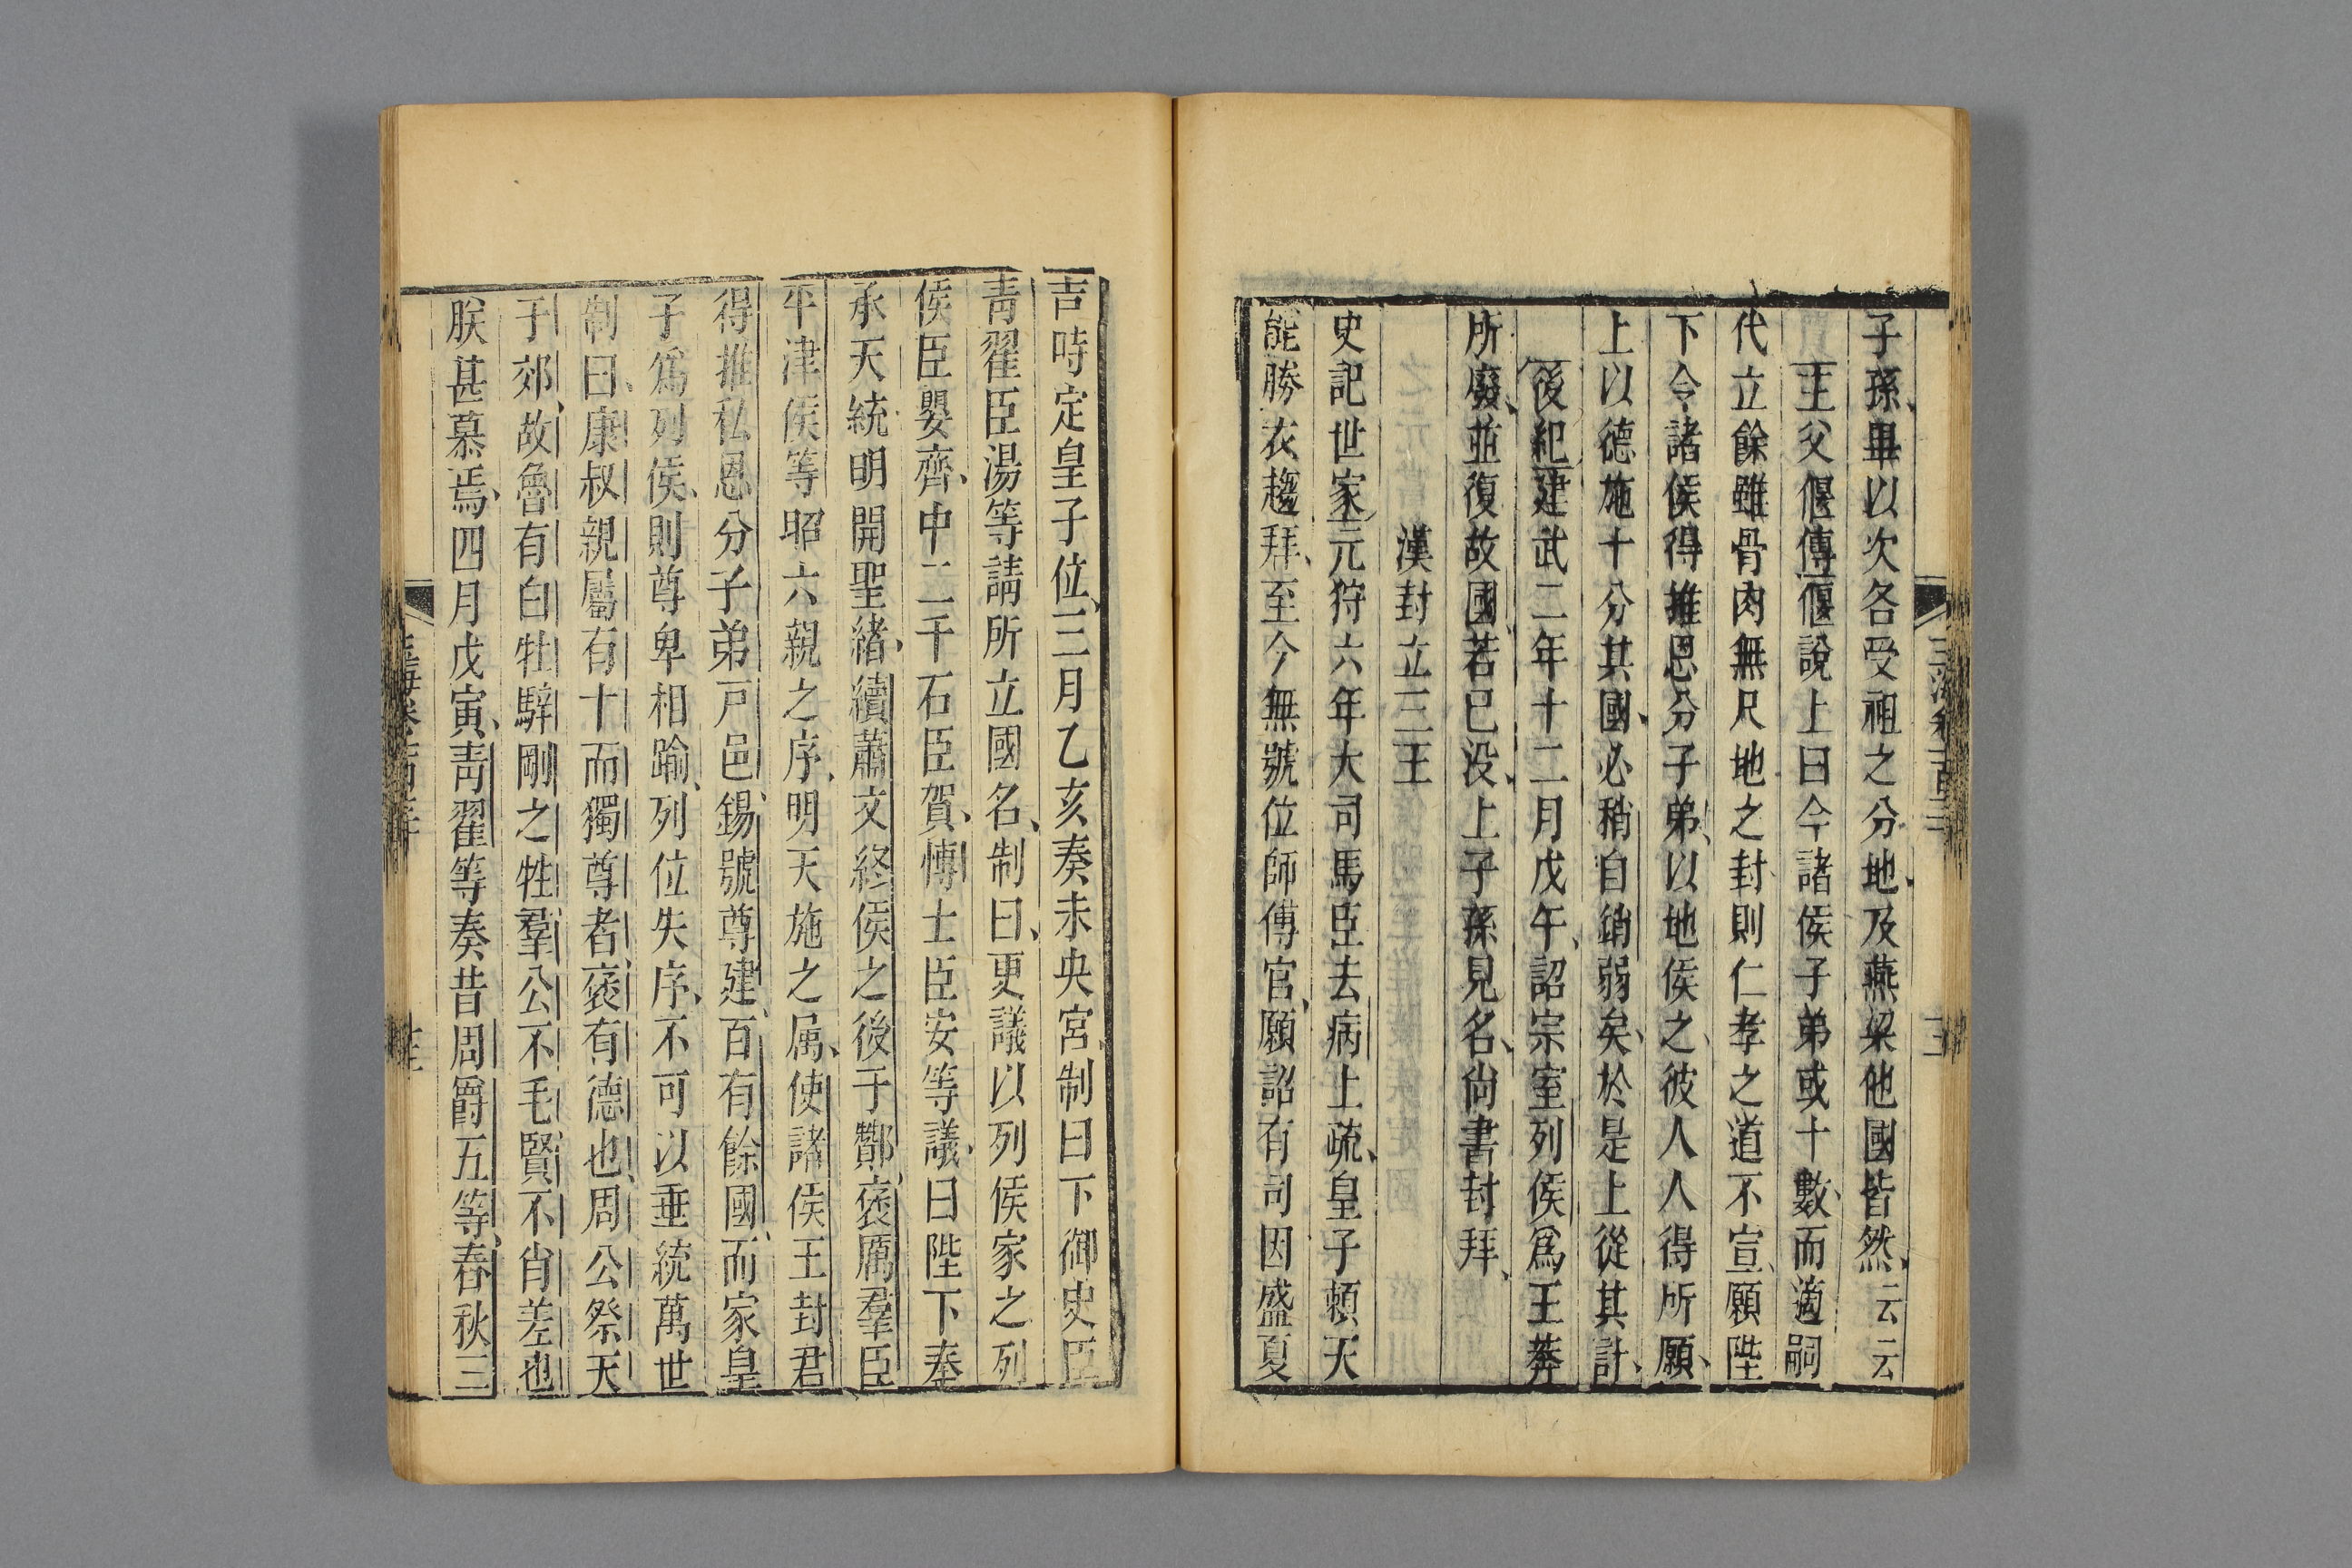 子孫畢以次各受祖之分地及燕梁他國皆然云云
主父偃傳偃說上曰今諸侯子弟或十數而適嗣
代立餘雖骨肉無尺地之封則仁孝之道不宣願陛
下令諸侯得推恩分子弟以地侯之彼人人得所願
上以德施十分其國必稍自銷弱矣於是上從其計
後紀建武二年十二月戊午詔宗室列侯爲王莽
所廢並復故國若已没上子孫見名尚書封拜
漢封立三王
史記世家元狩六年大司馬臣去病上疏皇子頼天
能勝衣趨拜至今無號位師傅官願詔有司因盛夏
吉時定皇子位三月乙亥奏未央宮制曰下御史臣
靑翟臣湯等請所立國名制曰更議以列侯家之列
侯臣嬰齊中二千石臣賀愽士臣安等議曰陛下奉
承天統明開聖緒續蕭文終侯之後于酇褒厲羣臣
平津侯等昭六親之序明天施之属使諸侯王封君
得推私恩分子弟戸邑錫號尊建百有餘國而家皇
子爲列侯則尊卑相踰列位失序不可以垂統萬世
制曰康叔親屬有十而獨尊者褒有德也周公祭天
于郊故魯有白牡騂剛之牲羣公不毛賢不肖差也
朕甚慕焉四月戊寅靑翟等奏昔周爵五等春秋三